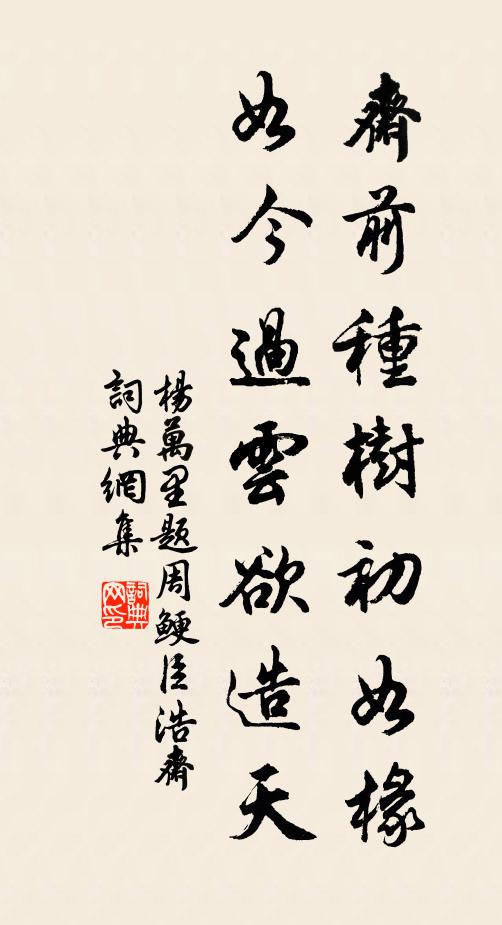 齋前種樹初如椽
如今過雲欲造天
楊萬里題周鯁臣浩齋
詞典網集
詞典網印